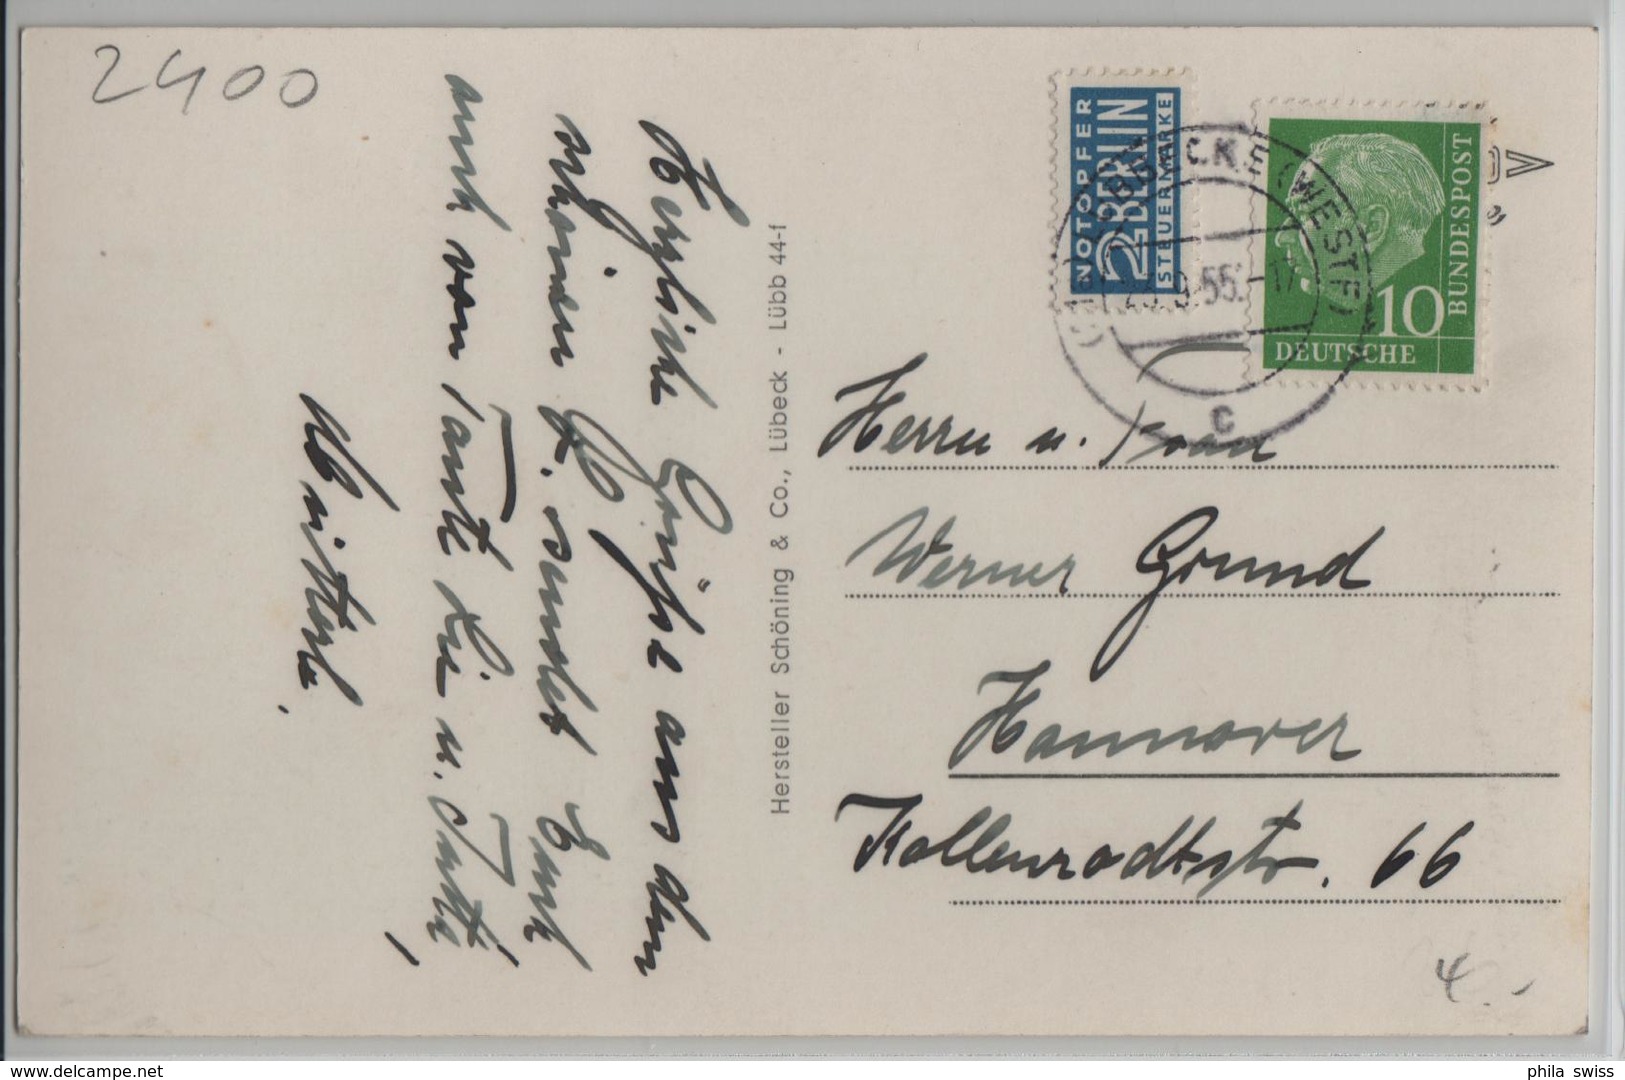 2400
Herzliche Grüße aus dem
schönen L. sendet Euch
auch von Tante Lie u. Tutti,
Mutterl.
Hersteller Schöning & Co., Lübeck - Lübb 44-f
NOTOPFER
2 BERLIN
STEUERMARKE
LÜBBECKE (WESTF)
9.55.-17
c
10
DEUTSCHE
BUNDESPOST
Herrn u. Frau
Werner Grund
Hannover
Kollenrodtstr. 66
4.-
delcampe.net
phila swiss